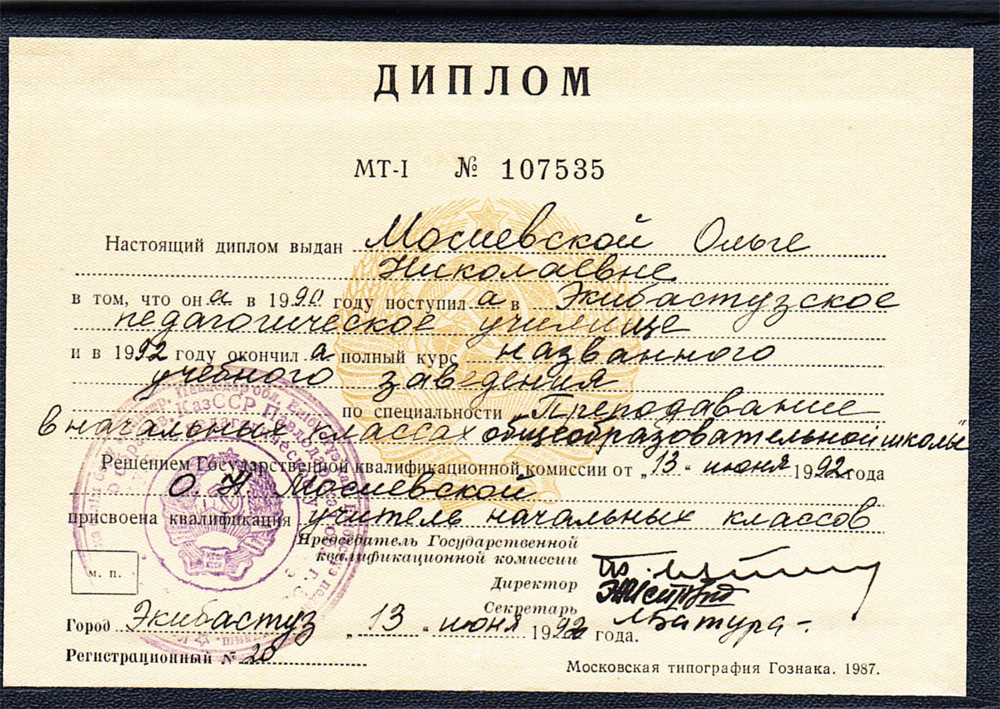 ДИПЛОМ
МТ-I № 107535
Настоящий диплом выдан Мосиевской Ольге
Николаевне
в том, что он а в 1990 году поступил а в Экибастузское
педагогическое училище
и в 1992 году окончил а полный курс названного
учебного заведения
по специальности „Преподавание
в начальных классах общеобразовательной школы"
Решением Государственной квалификационной комиссии от „13" июня 1992 года
О Н Мосиевской
присвоена квалификация учитель начальных классов
Председатель Государственной
квалификационной комиссии
Директор
Секретарь
м. п.
Город Экибастуз „13" июня 1992 года.
Регистрационный № 20
Московская типография Гознака. 1987.
КазССР